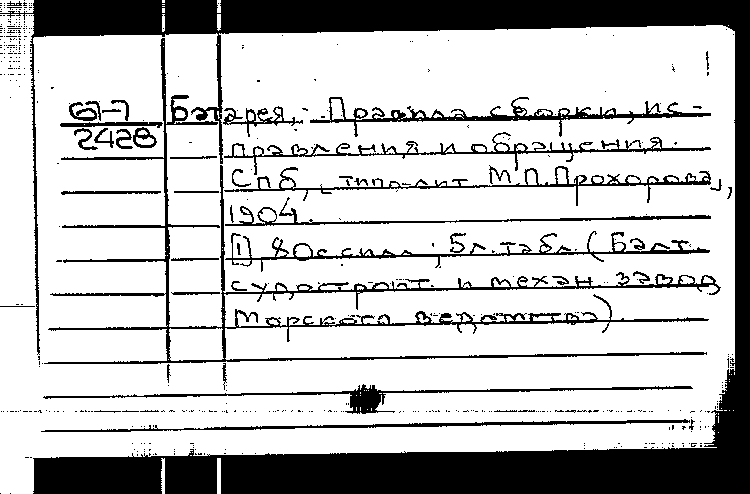 61-7 Батарея. Правила сборки, ис-
2428 правления и обращения.
Спб, типо-лит М.П. Прохорова,
1904.
[1], 80 с. илл; 5 л. табл. (Балт.
судостроит. и механ. завод
Морского ведомства).